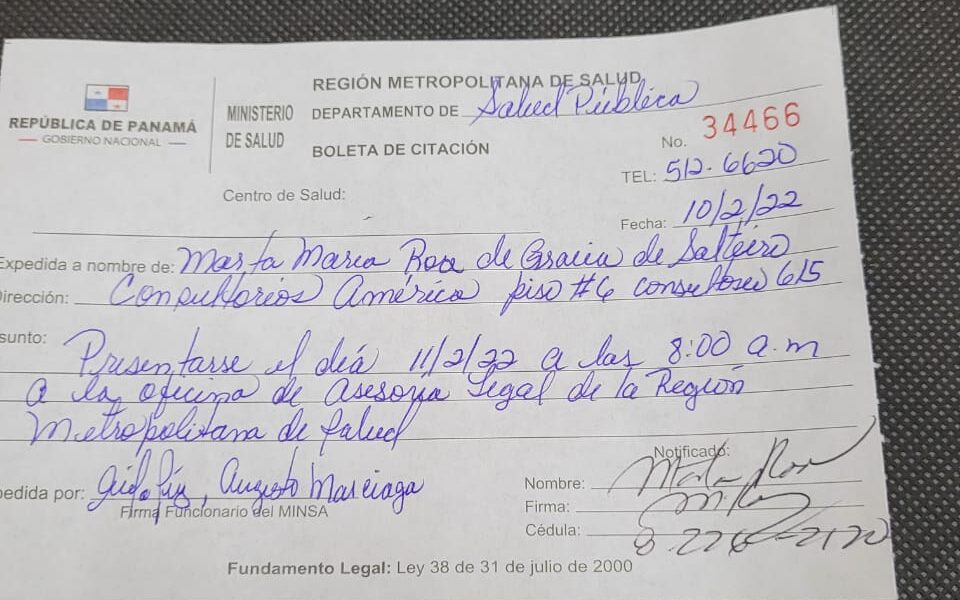 REGIÓN METROPOLITANA DE SALUD
REPÚBLICA DE PANAMÁ
GOBIERNO NACIONAL
MINISTERIO DE SALUD
DEPARTAMENTO DE Salud Pública
BOLETA DE CITACIÓN
No. 34466
TEL: 512-6620
Centro de Salud:
Fecha: 10/2/22
Expedida a nombre de: Marta Maria Roa de Gracia de
Dirección: Consultorios América piso #6 615
sunto: Presentarse el día 11/2/22 a las 8:00 a.m
a la oficina de Asesoria Legal de la Región
Metropolitana de Salud
Notificado:
pedida por: Augusto Marciaga
Firma Funcionario del MINSA
Nombre: Marta Roa
Firma:
Cédula:
Fundamento Legal: Ley 38 de 31 de julio de 2000